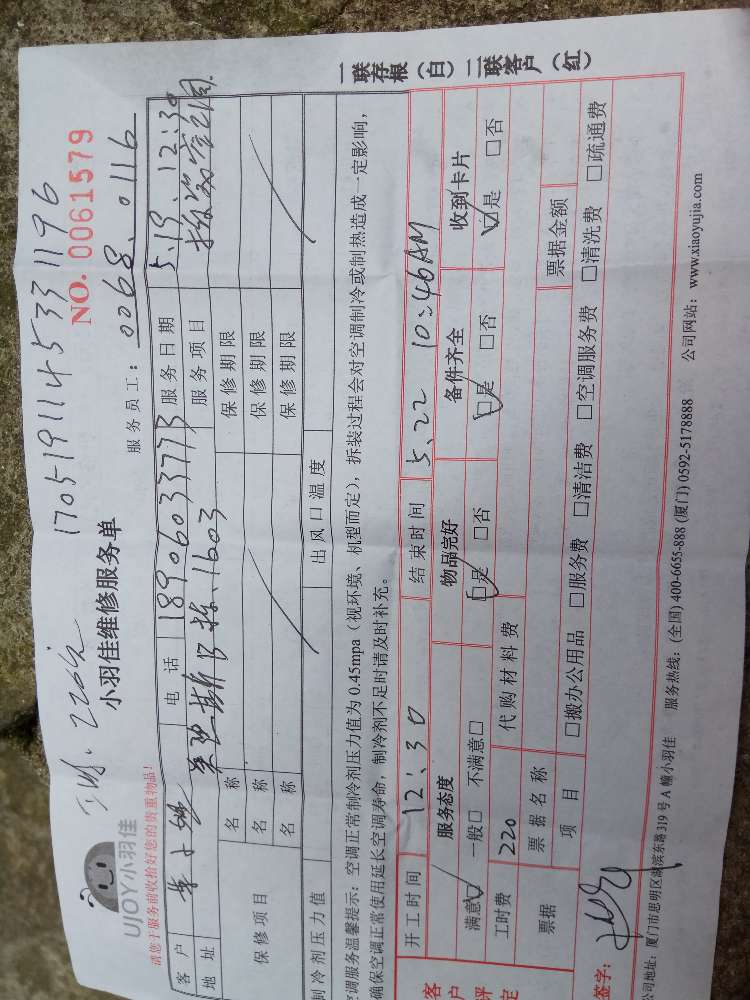 17051911453 31196
220元
UIOY小羽佳
小羽佳维修服务单
NO. 0061579
请您于服务前收拾好您的贵重物品!
服务员工: 0068. 0116
客户 电话 18906033773 服务日期 5.19. 12:30
地址 1603 服务项目
保修项目 名称 保修期限
名称 保修期限
名称 保修期限
制冷剂压力值 出风口温度
空调服务温馨提示: 空调正常制冷剂压力值为 0.45mpa (视环境、机型而定), 拆装过程会对空调制冷或制热造成一定影响,
确保空调正常使用延长空调寿命, 制冷剂不足时请及时补充。
开工时间 12:30 结束时间 5.22 10:46AM
客户评定 服务态度 物品完好 备件齐全 收到卡片
满意☑ 一般□ 不满意□ ☑是 □否 ☑是 □否 ☑是 □否
工时费 220 代购材料费
票据 票据名称 票据金额
项目 □搬办公用品 □服务费 □清洁费 □空调服务费 □清洗费 □疏通费
签字:
公司地址: 厦门市思明区湖滨东路 319 号 A 幢小羽佳 服务热线: (全国) 400-6655-888 (厦门) 0592-5178888 公司网站: www.xiaoyujia.com
一联存根(白) 二联客户(红)